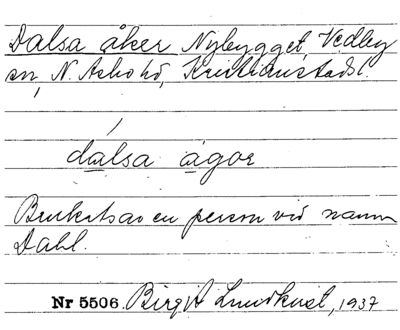 Dalsa åker Nybygget, Vedby
sn, N. Åsbo hd, Kristianstads l.
dalsa ågor
Brukats av en person vid namn
Dahl.
Nr 5506. Birgit Lundkvist, 1937